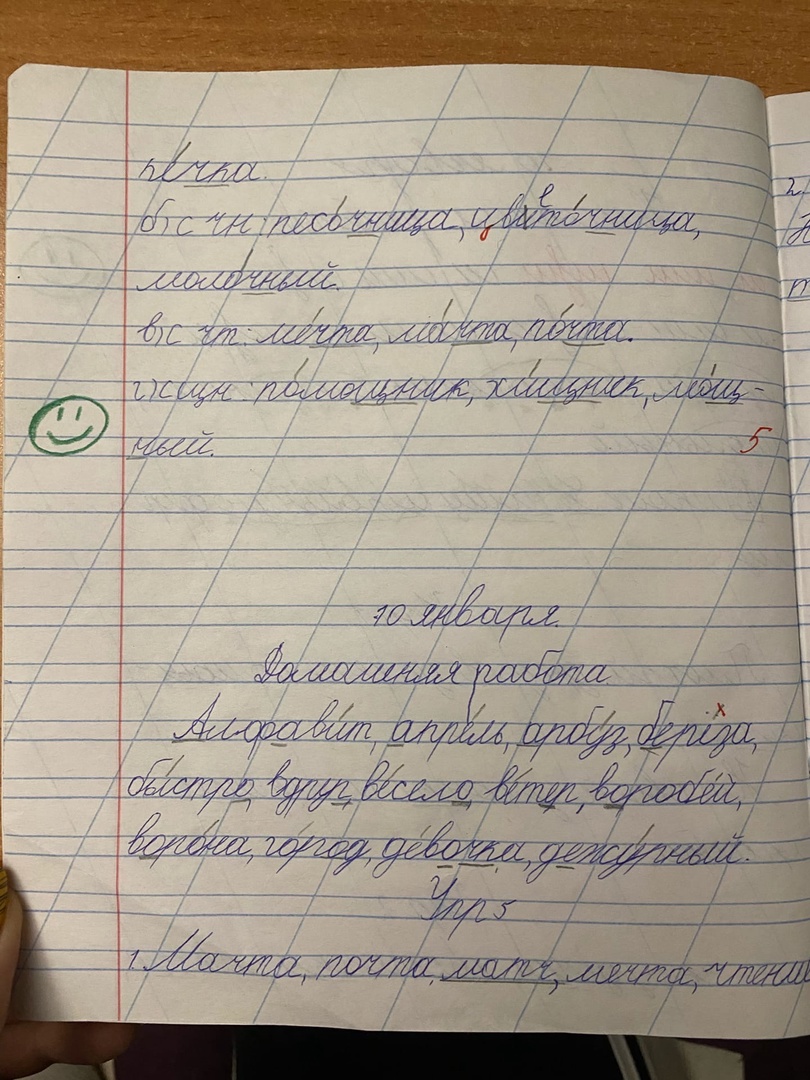 печка.
б) с чн: песочница, цветочница,
молочный.
в) с чт: мечта, мачта, почта.
г) с щн: помощник, хищник, мощ-
ный.
5
10 января.
Домашняя работа.
Алфавит, апрель, арбуз, берёза,
быстро, вдруг, весело, ветер, воробей,
ворона, город, девочка, дежурный.
Упр 5
1. Мачта, почта, матч, мечта, чтени